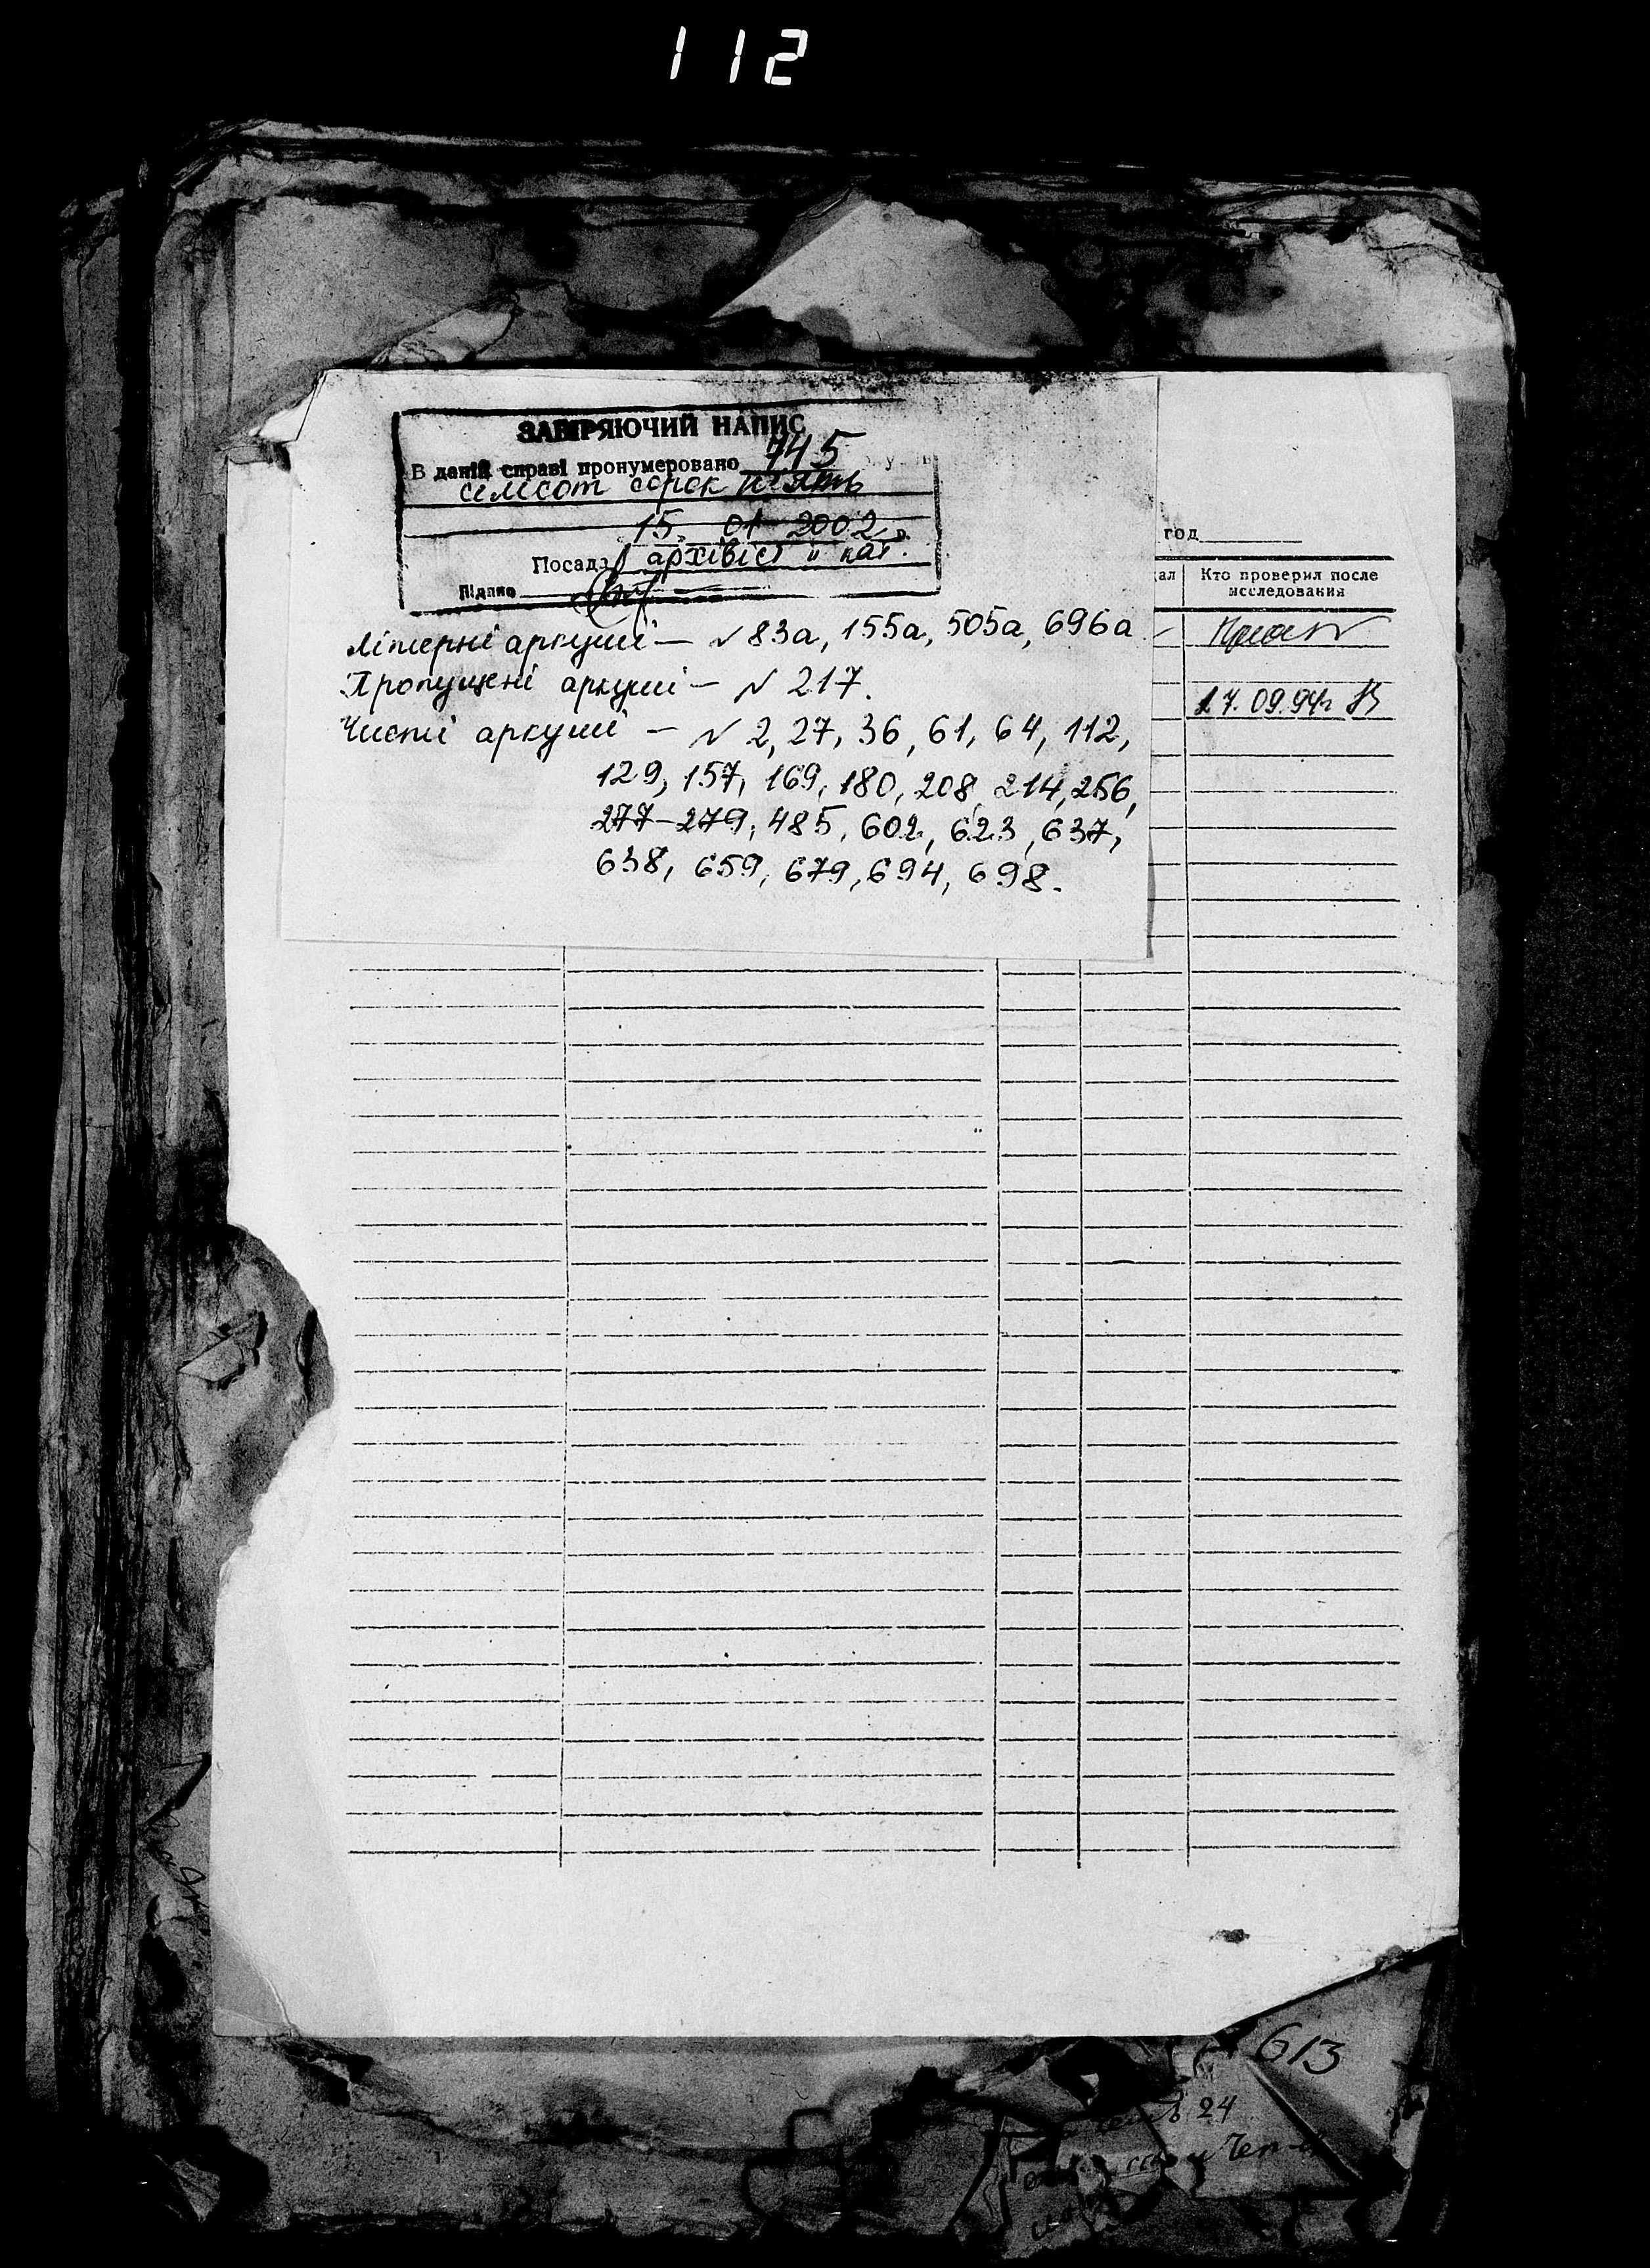 112
ЗАВІРЯЮЧИЙ НАПИС
В даній справі пронумеровано 745
сімсот сорок п'ять
15. 01 2002 р.
Посада архівіст II кат.
Підпис
год
ал Кто проверил после исследования
17. 09.94г
Літерні аркуші — № 83а, 155а, 505а, 696а
Пропущені аркуші — № 217.
Чисті аркуші — № 2, 27, 36, 61, 64, 112,
129, 157, 169, 180, 208, 214, 256,
277-279, 485, 602, 623, 637,
638, 659, 679, 694, 698.
613
24